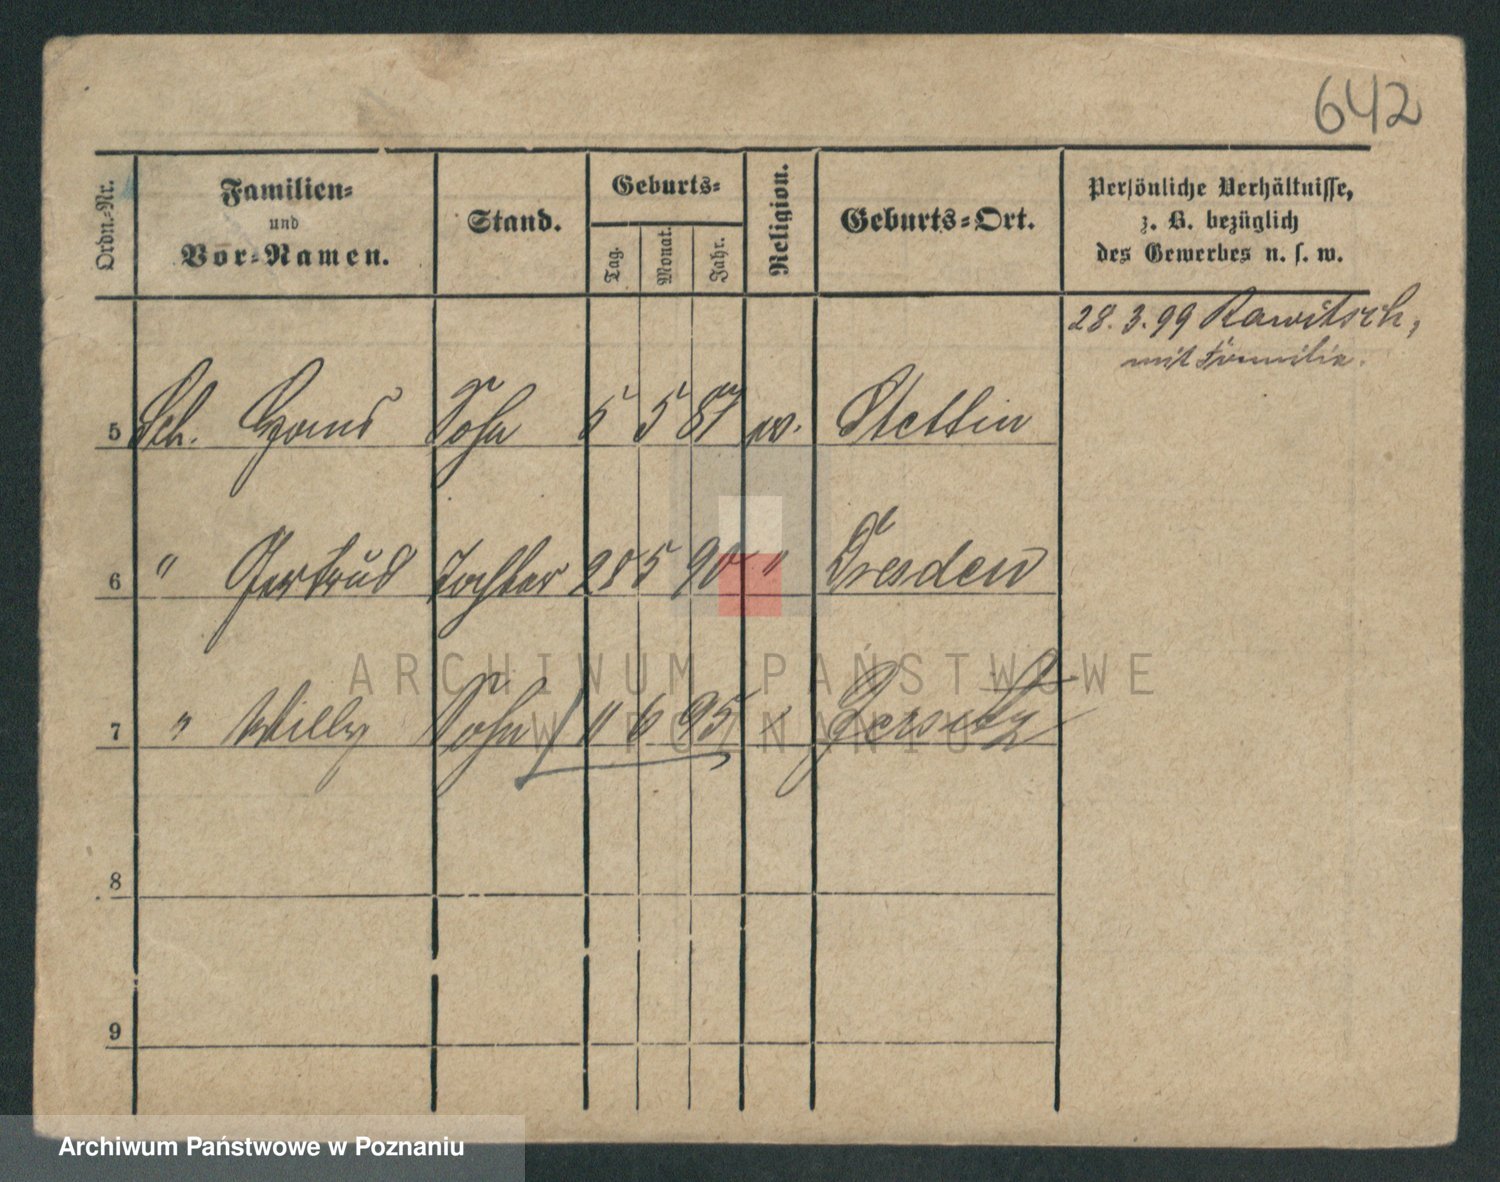 642
Ordn.-Nr.
Familien-
und
Vor-Namen.
Stand.
Geburts-
Tag.
Monat.
Jahr.
Religion.
Geburts-Ort.
Persönliche Verhältnisse,
z. B. bezüglich
des Gewerbes u. s. w.
28. 3. 99 Rawitsch,
mit Familie.
5 Sch. Hans Sohn 5 5 87 ev. Stettin
6 " Gertrud Tochter 28 5 90 " Dresden
7 " Willy Sohn 11 6 95 "
8
9
ARCHIWUM PAŃSTWOWE
W POZNANIU
Archiwum Państwowe w Poznaniu